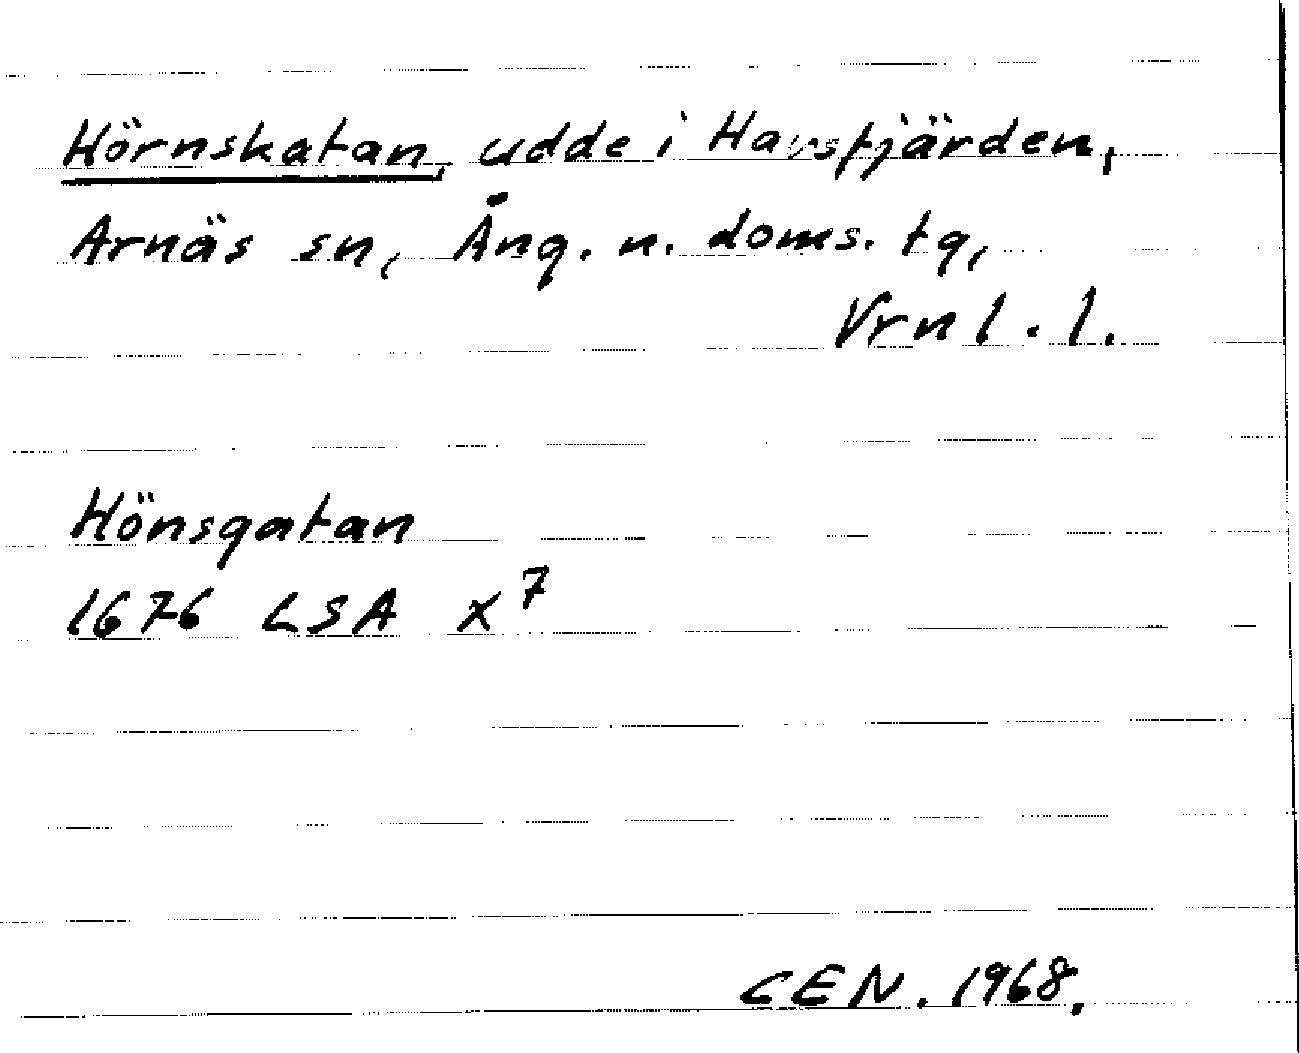 Hörnskatan, udde i Havsfjärden,
Arnäs sn, Ång. n. doms. tg,
Vrnl. l.
Hönsgatan
1676 LSA X 7
CEN. 1968.